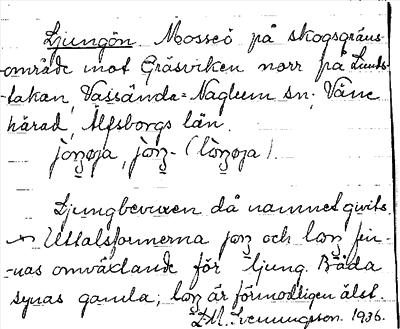 Ljungön. Mosseö på skogsgräns-
område mot Gräsviken norr på Lunds-
takan, Vassända-Naglum sn; Väne
härad, Älfsborgs län.
jòŋøja, jòŋ- (lòŋøja).
Ljungbevuxen då namnet givits.
Uttalsformerna joŋ och loŋ fin-
nas omväxlande för ljung. Båda
synas gamla; loŋ är förmodligen älst.
Svenningson. 1936.